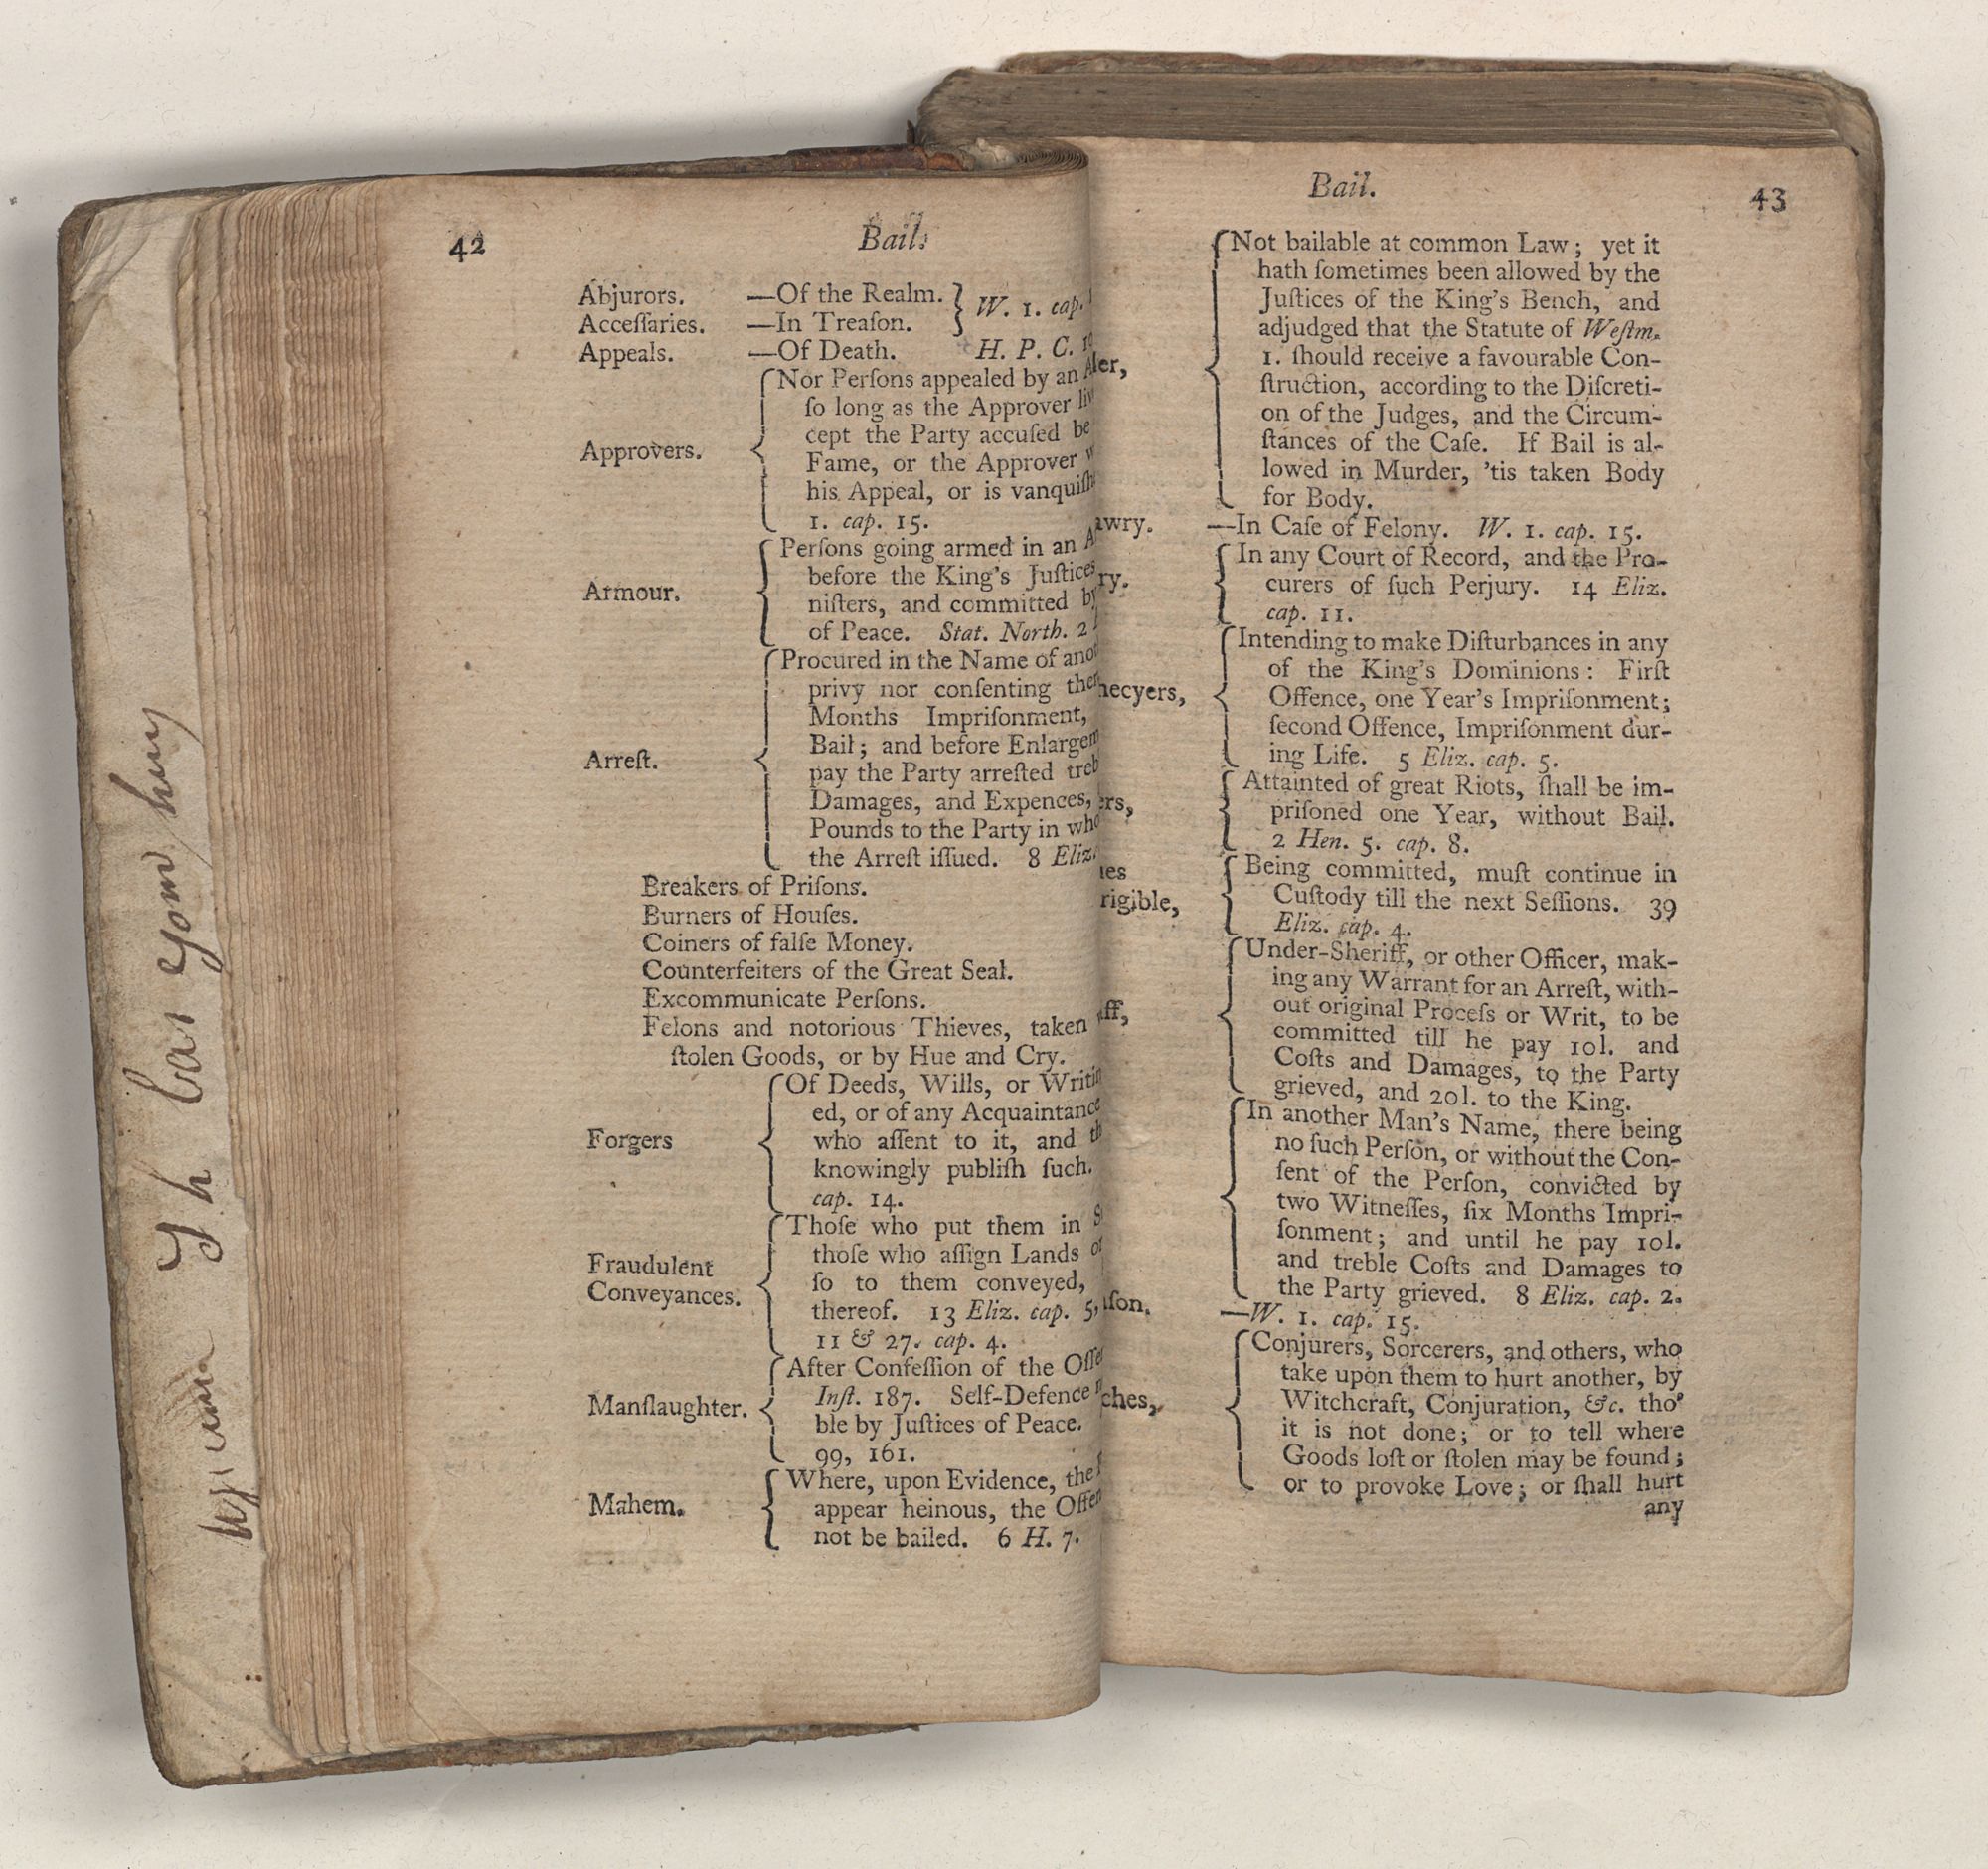 42
Bail.
Abjurors. —Of the Realm. } W. 1. cap.
Acceſſaries. —In Treaſon.
Appeals. —Of Death. H. P. C.
Nor Perſons appealed by an
ſo long as the Approver
cept the Party accuſed be
Approvers.
Fame, or the Approver
his Appeal, or is vanquiſh
1. cap. 15.
Perſons going armed in an
before the King's Juſtices
Armour.
niſters, and committed by
of Peace. Stat. North. 2
Procured in the Name of ano
privy nor conſenting
Months Impriſonment,
Bail; and before Enlargem
Arreſt.
pay the Party arreſted treb
Damages, and Expences,
Pounds to the Party in who
the Arreſt iſſued. 8 Eliz.
Breakers of Priſons.
Burners of Houſes.
Coiners of falſe Money.
Counterfeiters of the Great Seal.
Excommunicate Perſons.
Felons and notorious Thieves, taken
ſtolen Goods, or by Hue and Cry.
Of Deeds, Wills, or Writin
ed, or of any Acquaintance
Forgers
who aſſent to it, and
knowingly publiſh ſuch.
cap. 14.
Thoſe who put them in
thoſe who aſſign Lands
Fraudulent
ſo to them conveyed,
Conveyances.
thereof. 13 Eliz. cap. 5,
11 & 27. cap. 4.
After Confeſſion of the Offe
Inſt. 187. Self-Defence
Manſlaughter.
ble by Juſtices of Peace.
99, 161.
Where, upon Evidence, the
Mahem.
appear heinous, the Offen
not be bailed. 6 H. 7.
Bail.
43
Not bailable at common Law; yet it
hath ſometimes been allowed by the
Juſtices of the King's Bench, and
adjudged that the Statute of Weſtm.
1. ſhould receive a favourable Con-
ſtruction, according to the Diſcreti-
on of the Judges, and the Circum-
ſtances of the Caſe. If Bail is al-
lowed in Murder, 'tis taken Body
for Body.
awry. —In Caſe of Felony. W. 1. cap. 15.
In any Court of Record, and the Pro-
ry. curers of ſuch Perjury. 14 Eliz.
cap. 11.
Intending to make Diſturbances in any
of the King's Dominions: Firſt
hecyers, Offence, one Year's Impriſonment;
ſecond Offence, Impriſonment dur-
ing Life. 5 Eliz. cap. 5.
Attainted of great Riots, ſhall be im-
ers, priſoned one Year, without Bail.
2 Hen. 5. cap. 8.
ies Being committed, muſt continue in
rigible, Cuſtody till the next Seſſions. 39
Eliz. cap. 4.
Under-Sheriff, or other Officer, mak-
ing any Warrant for an Arreſt, with-
iff, out original Proceſs or Writ, to be
committed till he pay 10l. and
Coſts and Damages, to the Party
grieved, and 20l. to the King.
In another Man's Name, there being
no ſuch Perſon, or without the Con-
ſent of the Perſon, convicted by
two Witneſſes, ſix Months Impri-
ſonment; and until he pay 10l.
and treble Coſts and Damages to
the Party grieved. 8 Eliz. cap. 2.
aſon. —W. 1. cap. 15.
Conjurers, Sorcerers, and others, who
take upon them to hurt another, by
ches, Witchcraft, Conjuration, &c. tho'
it is not done; or to tell where
Goods loſt or ſtolen may be found;
or to provoke Love; or ſhall hurt
any